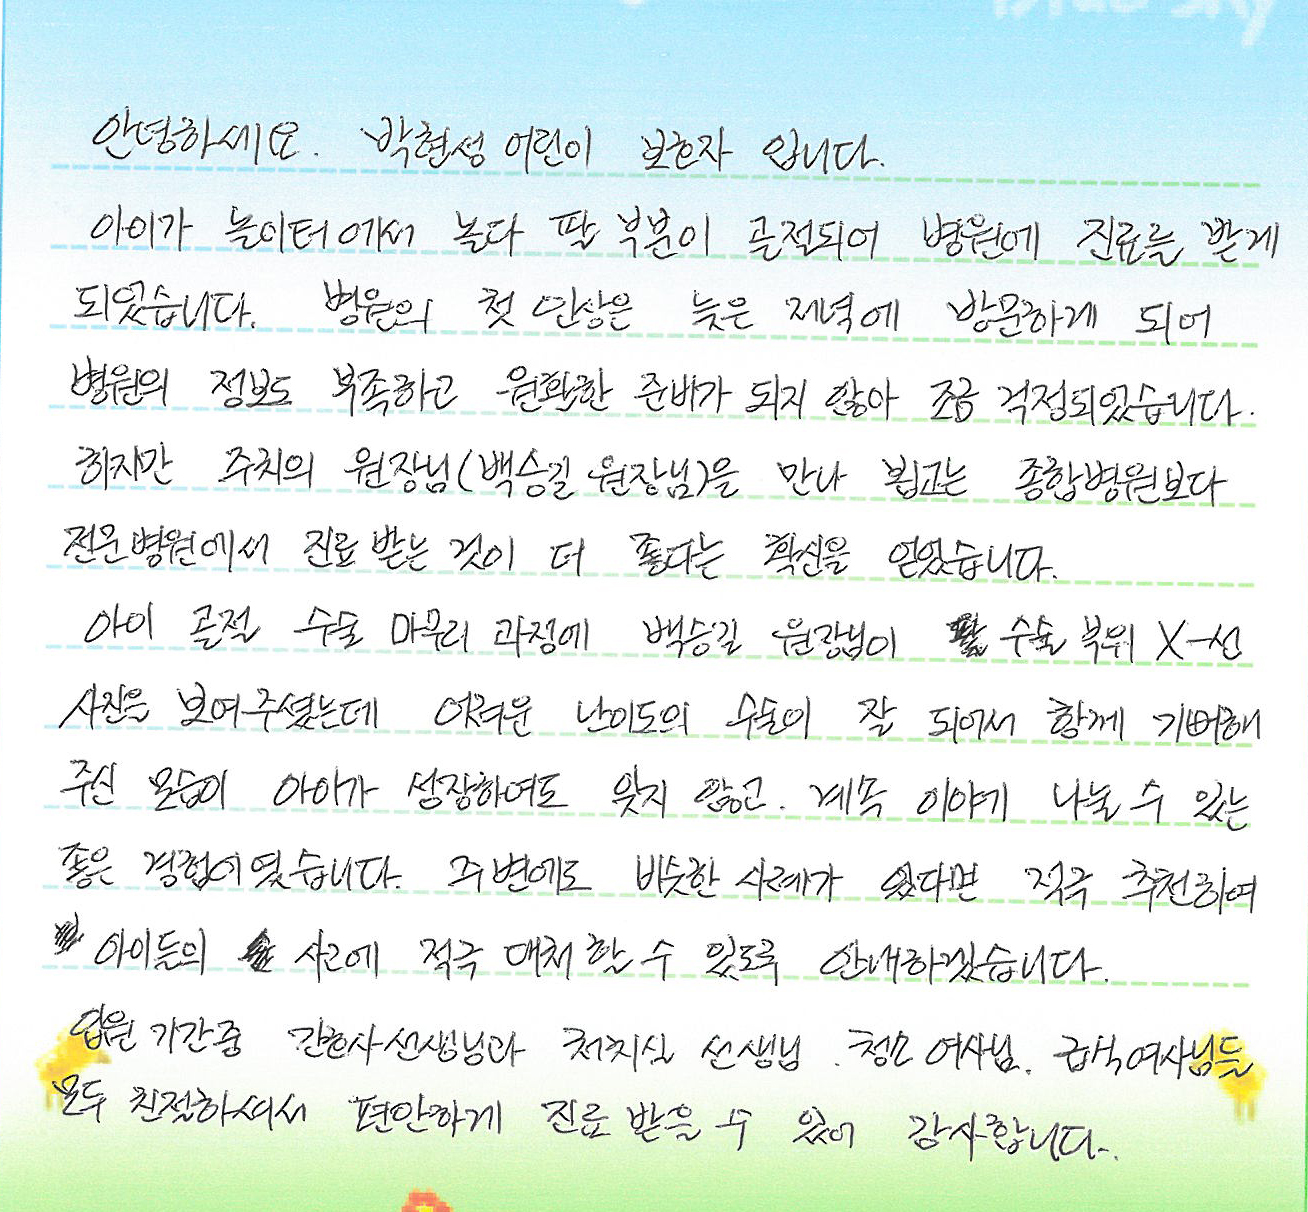 Blue Sky
안녕하세요. 박현성 어린이 보호자 입니다.
아이가 놀이터에서 놀다 팔 부분이 골절되어 병원에 진료를 받게
되었습니다. 병원의 첫 인상은 늦은 저녁에 방문하게 되어
병원의 정보도 부족하고 원활한 준비가 되지 않아 조금 걱정되었습니다.
하지만 주치의 원장님(백승길 원장님)을 만나 뵙고는 종합병원보다
전문병원에서 진료 받는 것이 더 좋다는 확신을 얻었습니다.
아이 골절 수술 마무리 과정에 백승길 원장님이 수술 부위 X-선
사진을 보여주셨는데 어려운 난이도의 수술이 잘 되어서 함께 기뻐해
주신 모습이 아이가 성장하여도 잊지 않고. 계속 이야기 나눌 수 있는
좋은 경험이였습니다. 주변에도 비슷한 사례가 있다면 적극 추천하여
아이들의 사고에 적극 대처 할 수 있도록 안내하겠습니다.
입원 기간중 간호사선생님과 처치실 선생님. 청소 여사님. 급식여사님들
모두 친절하셔서 편안하게 진료 받을 수 있어 감사합니다.